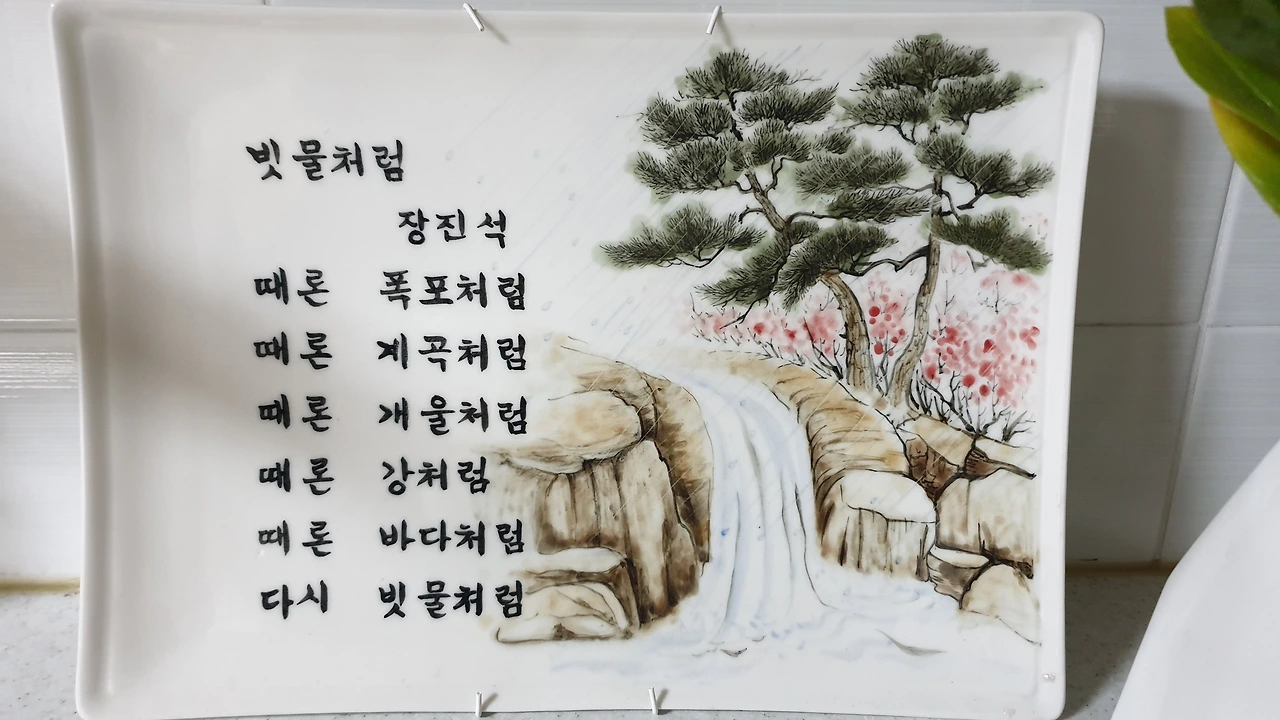 빗물처럼
장진석
때론 폭포처럼
때론 계곡처럼
때론 개울처럼
때론 강처럼
때론 바다처럼
다시 빗물처럼